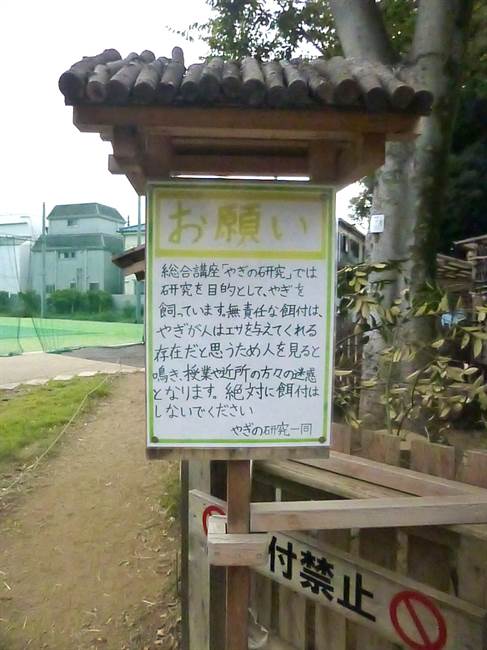 お願い
総合講座「やぎの研究」では
研究を目的として、やぎを
飼っています。無責任な餌付は、
やぎが人はエサを与えてくれる
存在だと思うため人を見ると
鳴き、授業や近所の方々の迷惑
となります。絶対に餌付は
しないでください
やぎの研究一同
付禁止